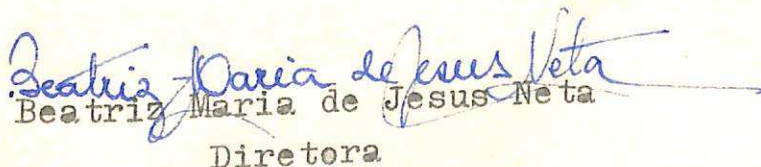 Beatriz Maria de Jesus Neta
Beatriz Maria de Jesus Neta
Diretora